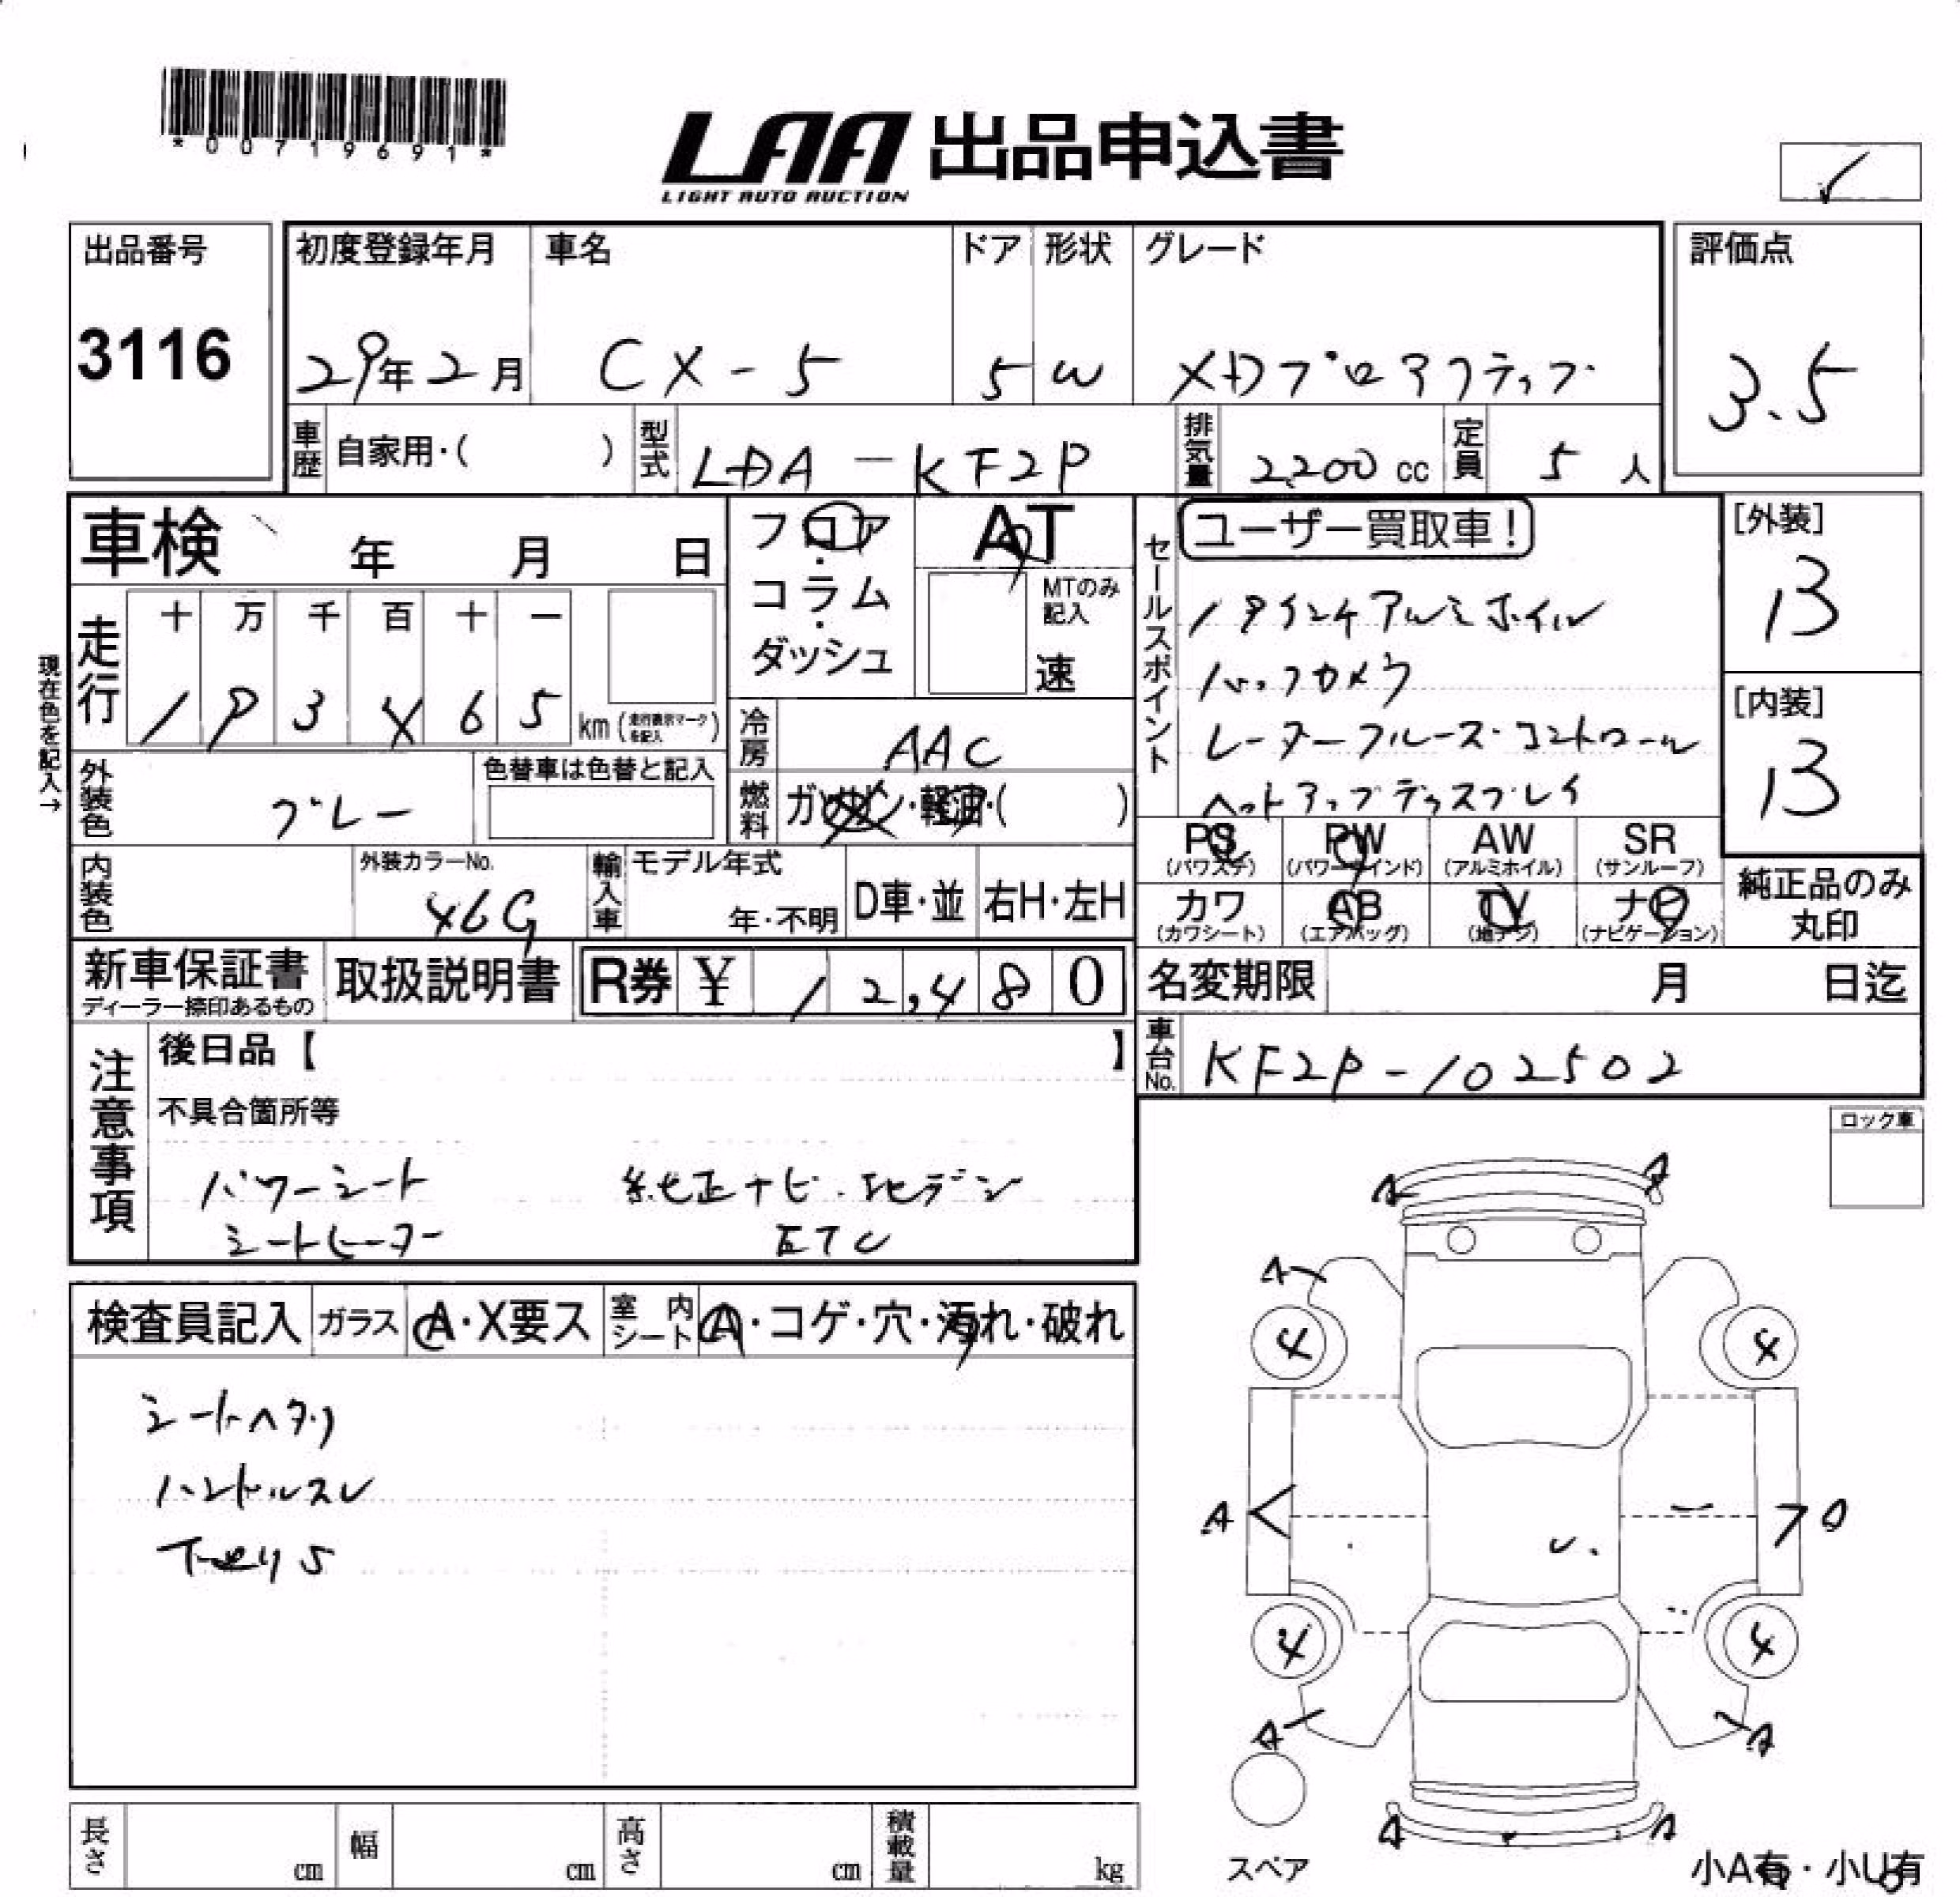 *00719691*
LAA 出品申込書
LIGHT AUTO AUCTION
出品番号
3116
初度登録年月
29年2月
車名
CX-5
ドア
5
形状
W
グレード
XDプロアクティブ
評価点
3.5
車歴
自家用・( )
型式
LDA-KF2P
排気量
2200 cc
定員
5人
車検 年 月 日
フロア・
コラム・
ダッシュ
AT
MTのみ記入
速
セールスポイント
ユーザー買取車!
19インチアルミホイル
バックカメラ
レーダークルーズ・コントロール
ヘットアップディスプレイ
[外装]
13
[内装]
13
現在色を記入→
走行
十 万 千 百 十 一
km (走行表示マークを記入)
冷房
AAC
外装色
グレー
色替車は色替と記入
燃料
ガソリン・軽油・( )
PS
(パワステ)
PW
(パワーウインド)
AW
(アルミホイル)
SR
(サンルーフ)
カワ
(カワシート)
AB
(エアバッグ)
TV
(地デジ)
ナビ
(ナビゲーション)
純正品のみ
丸印
内装色
外装カラーNo.
46G
輸入車
モデル年式
年・不明
D車・並
右H・左H
新車保証書
ディーラー捺印あるもの
取扱説明書
R券 ¥ 12,480
名変期限 月 日迄
車台No.
KF2P-102502
注意事項
後日品【 】
不具合箇所等
パワーシート 純正ナビ.地デジ
シートヒーター ETC
ロック車
検査員記入
ガラス
A・X要ス
室内シート
A・コゲ・穴・汚れ・破れ
シートヘタリ
ハンドルスレ
A A
A
4 4
A
4 4
A A
A A
スペア
小A有・小U有
長さ cm
幅 cm
高さ cm
積載量 kg